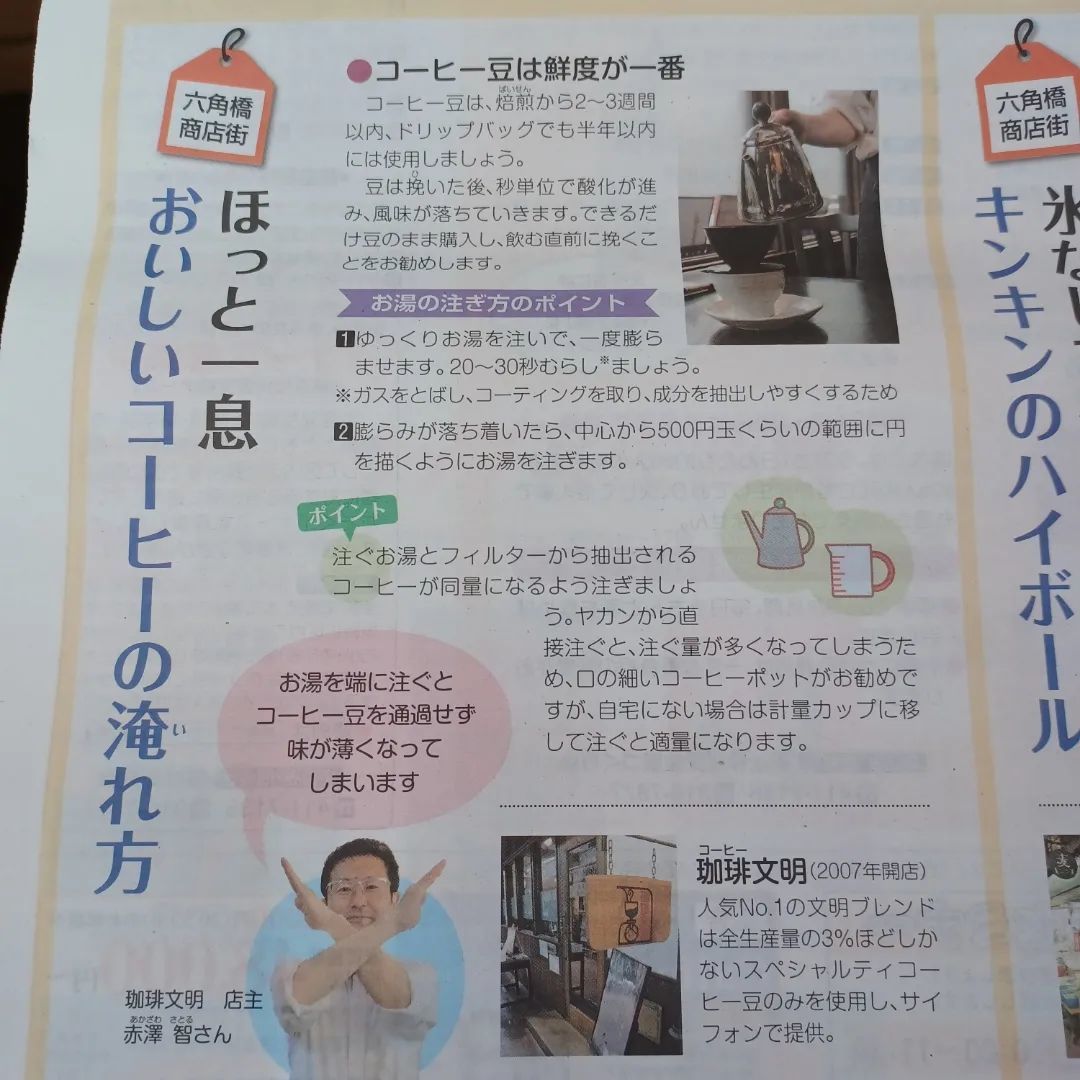 六角橋
商店街
ほっと一息
おいしいコーヒーの淹れ方
い
●コーヒー豆は鮮度が一番
ばいせん
コーヒー豆は、焙煎から2〜3週間
以内、ドリップバッグでも半年以内
には使用しましょう。
ひ
豆は挽いた後、秒単位で酸化が進
み、風味が落ちていきます。できるだ
け豆のまま購入し、飲む直前に挽くこ
とをお勧めします。
お湯の注ぎ方のポイント
1 ゆっくりお湯を注いで、一度膨ら
ませます。20〜30秒むらし※ましょう。
※ガスをとばし、コーティングを取り、成分を抽出しやすくするため
2 膨らみが落ち着いたら、中心から500円玉くらいの範囲に円
を描くようにお湯を注ぎます。
ポイント
注ぐお湯とフィルターから抽出される
コーヒーが同量になるよう注ぎましょ
う。ヤカンから直
接注ぐと、注ぐ量が多くなってしまうた
め、口の細いコーヒーポットがお勧めで
すが、自宅にない場合は計量カップに移
して注ぐと適量になります。
お湯を端に注ぐと
コーヒー豆を通過せず
味が薄くなって
しまいます
珈琲文明 店主
あかざわ さとる
赤澤 智さん
コーヒー
珈琲文明(2007年開店)
人気No.1の文明ブレンド
は全生産量の3%ほどしか
ないスペシャルティコー
ヒー豆のみを使用し、サイ
フォンで提供。
六角橋
商店街
キンキンのハイボール